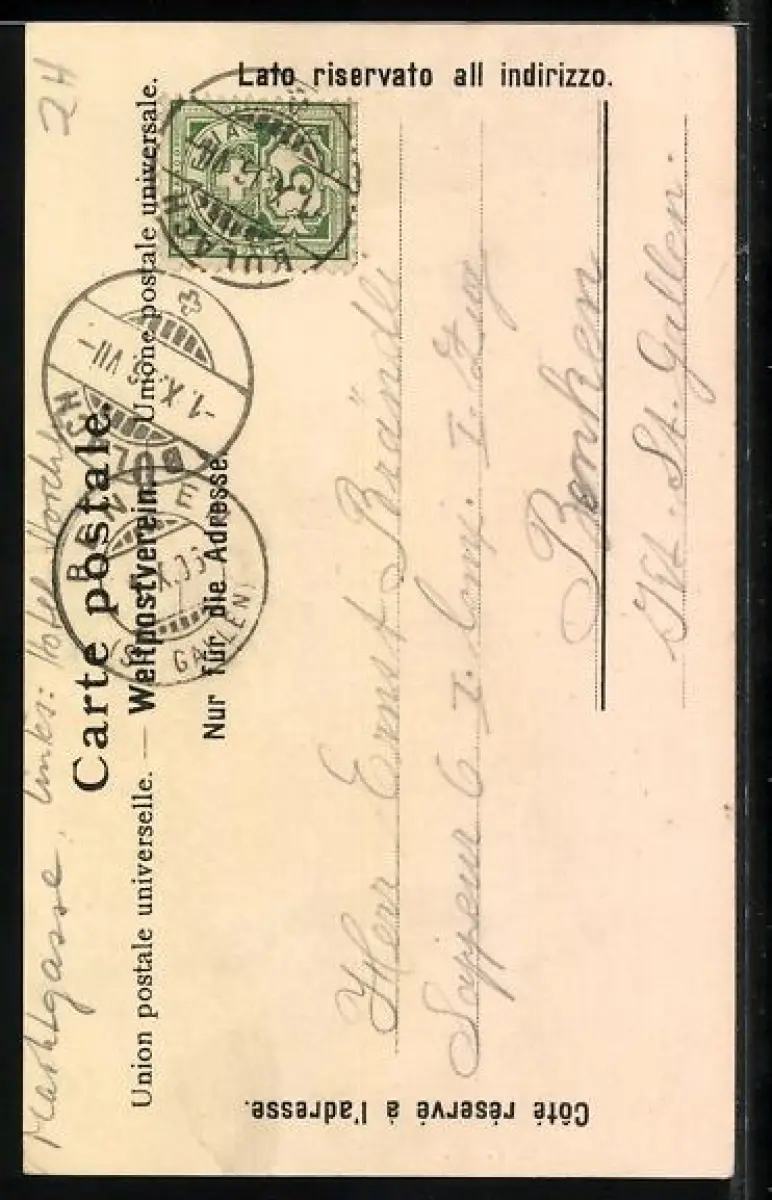 24
Marktgasse, links: Hotel Storch
Carte postale.
Union postale universelle. — Weltpostverein. — Unione postale universale.
Nur für die Adresse.
Côté réservé à l'adresse.
Lato riservato all indirizzo.
5
BÜLACH
BÜLACH
-1.X.06.VII-
BENKEN
X.06
(ST. GALLEN)
Herr Ernst Brändli
Sappeur 6 I. Comp. I. Zug
Benken
Kt. St. Gallen.